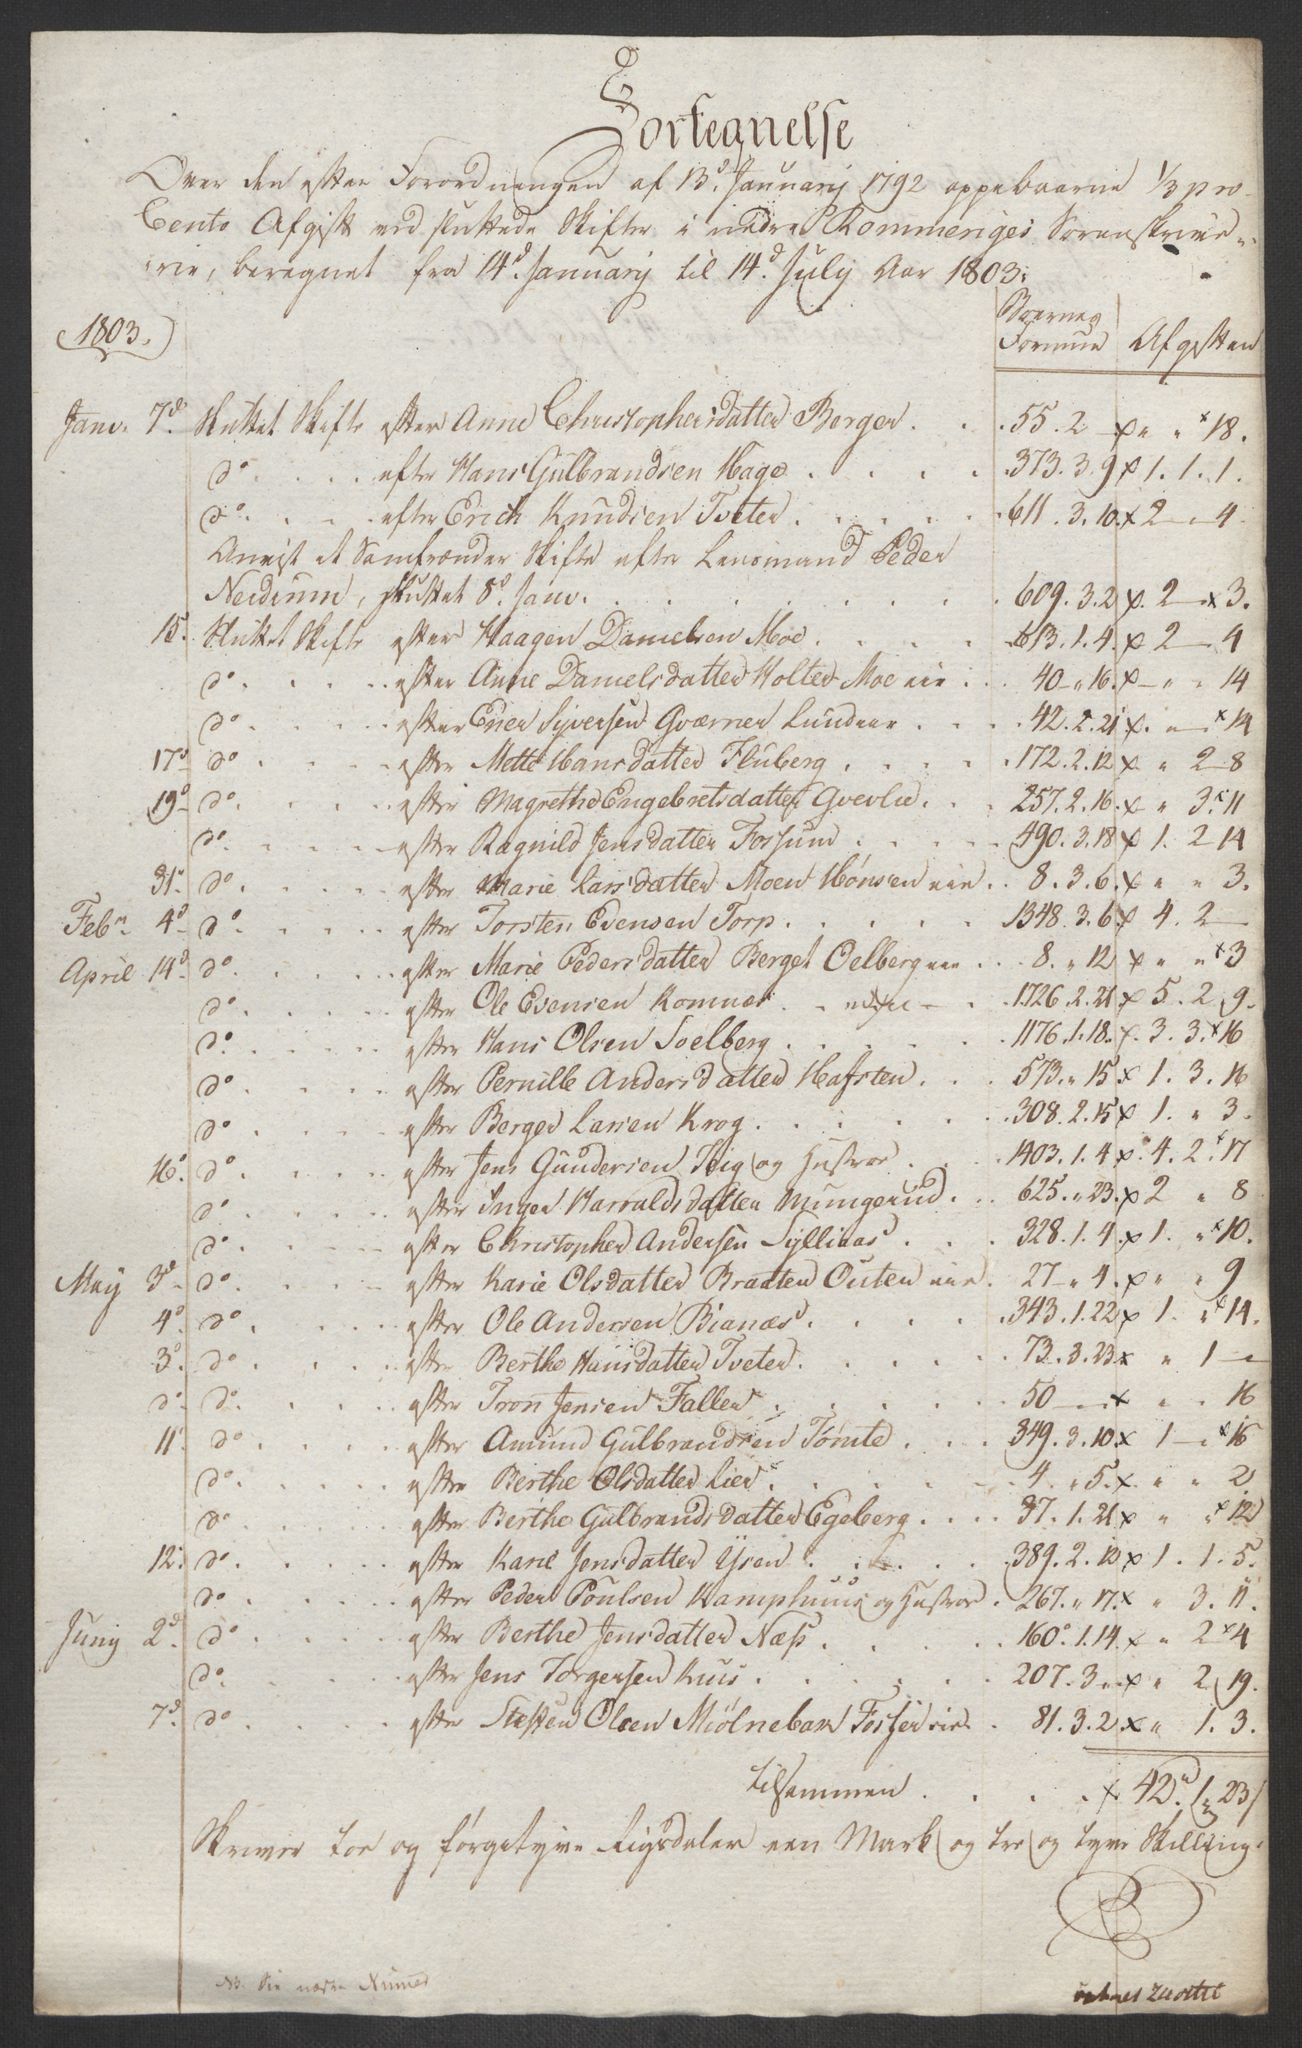 Fortegnelse
Over den efter Forordningen af 13d. Januarij 1792 oppebaarne 1/3 pro
Cento Afgift ved sluttede Skifter i nedre Rommeriges Sorenskrive-
rie, beregnet fra 14d. Januarij til 14d. July Aar 1803:
1803. Boernes Formue Afgiften
Janv. 7d. Sluttet Skifte efter Anne Christophersdatter Berger . . 55. 2 — x „ „ x 18.
do . . . . efter Hans Gulbrandsen Hage . . . . 373. 3. 9 x 1. 1. 1.
do . . . . efter Erich Knudsen Tveter . . . . 611. 3. 10. x 2 — 4
Anvist et Samfrænder Skifte efter Lensmand Peder
Nerdrum, sluttet 8d. Janv. . . . . 609. 3. 2 x. 2 — x 3.
15. Sluttet Skifte efter Haagen Danielsen Moe . . . . 613. 1. 4. x 2 — 4
do . . . . efter Anne Danielsdatter Holter Moe eie . . 40 „ 16. x — „ „ 14
do . . . . efter Erier Syversen Gværner Lundeer . . . 42. 2. 21 x. „ — x 14
17d do . . . . efter Mette Hansdatter Fluberg . . . . 172. 2. 12 x — „ 2 — 8
19d do . . . . efter Magrethe Engebretsdatter Grevlie . . . 257. 2. 16. x — „ 3. x 11
do . . . . efter Ragnild Jensdatter Fossum . . . . 490. 3. 18 x 1. 2 14
31d do . . . . efter Marie Larsdatter Moen Hønsen eie . . 8. 3. 6. x „ „ 3.
Febr. 4d do . . . . efter Torsten Evensen Torp . . . . 1348. 3. 6 x 4. 2 —
April 14d do . . . . efter Marie Pedersdatter Berget Oelberg eie . . . 8. „ 12 x „ „ x 3
do . . . . efter Ole Evensen Komnes . . . 1726. 2. 21 x 5. 2 9.
do . . . . efter Hans Olsen Soelberg . . . . 1176. 1. 18. x. 3. 3. x 16
do . . . . efter Pernille Andersdatter Hafsten . . . 573. „ 15 x 1. 3. 16
do . . . . efter Berger Larsen Krog . . . . 308. 2. 15 x 1. „ 3.
16d do . . . . efter Jens Gundersen Teig og Hustroe . . . 1403. 1. 4 x. 4. 2. x 17
do . . . . efter Inger Harraldsdatter Mungerud . . . 625. „ 23. x 2 „ 8
do . . . . efter Christopher Andersen Sylliaas . . . 328. 1. 4. x 1. „ x 10.
May 3d do . . . . efter Karie Olsdatter Braaten Outen eie . 27 — „ 4. x „ „ 9
4d. do . . . . efter Ole Andersen Bianæs . . . . 343. 1. 22 x 1. „ x 14.
3d. do . . . . efter Berthe Hansdatter Tveter . . . . 73. 3. 23 x „ 1 —
do do . . . . efter Tron Jensen Faller . . . . 50 — x „ . 16
11 do . . . . efter Amund Gulbrandsen Tømte . . . 349. 3. 10. x 1 — x 16
do . . . . efter Berthe Olsdatter Lier . . . . 4 „ 5. x. „ „ 2
do . . . . efter Berthe Gulbrandsdatter Egeberg . . . . 37. 1. 21 x „ „ x 12
12. do . . . . efter Karie Jensdatter Ysen . . . . 389. 2. 12 x 1. 1. 5.
do . . . . efter Peder Poulsen Kamphuus og Hustroe . 267. „ 17. x „ 3. 11.
Junij 2d. do . . . . efter Berthe Jensdatter Næss . . . . 160. 1. 14. x „ 2 x 4
do . . . . efter Jens Torgersen Kuus . . . . 207. 3 „ x „ 2 19.
7d. do . . . . efter Steffen Olsen Miølnebak Fosser eie . 81. 3. 2. x „ 1. 3.
tilsammen . . . . x 42. 1. 23
Skriver toe og førgetyve Rigsdaler een Mark og tre og tyve Skilling.
NB. See næste Numer